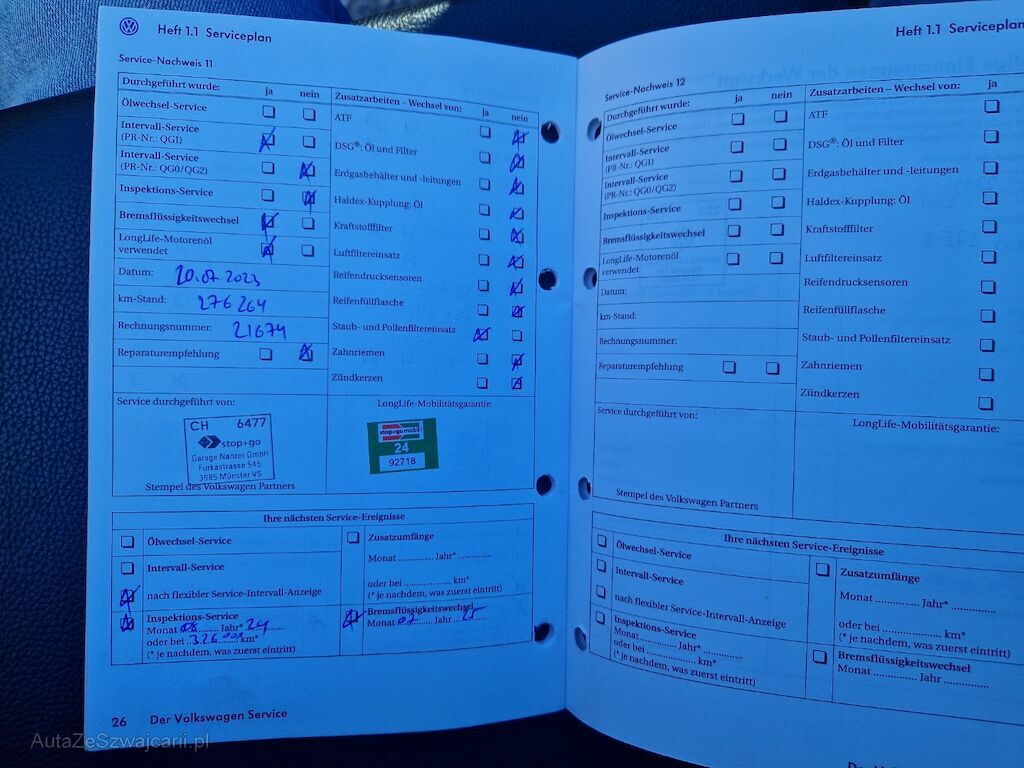 Heft 1.1 Serviceplan
Service-Nachweis 11
Durchgeführt wurde: ja nein
Ölwechsel-Service
Intervall-Service
(PR-Nr.: QG1)
Intervall-Service
(PR-Nr.: QG0/QG2)
Inspektions-Service
Bremsflüssigkeitswechsel
LongLife-Motorenöl
verwendet
Datum: 20.07 2023
km-Stand: 276 264
Rechnungsnummer: 21674
Reparaturempfehlung
Zusatzarbeiten – Wechsel von: ja nein
ATF
DSG®: Öl und Filter
Erdgasbehälter und -leitungen
Haldex-Kupplung: Öl
Kraftstofffilter
Luftfiltereinsatz
Reifendrucksensoren
Reifenfüllflasche
Staub- und Pollenfiltereinsatz
Zahnriemen
Zündkerzen
Service durchgeführt von:
CH 6477
stop+go
Garage Nanzer GmbH
Furkastrasse 545
3985 Münster VS
Stempel des Volkswagen Partners
LongLife-Mobilitätsgarantie:
stop+go mobil
24
92718
Ihre nächsten Service-Ereignisse
Ölwechsel-Service
Intervall-Service
nach flexibler Service-Intervall-Anzeige
Inspektions-Service
Monat 08 Jahr* 24
oder bei 326000 km*
(* je nachdem, was zuerst eintritt)
Zusatzumfänge
Monat .............. Jahr* ..............
oder bei .................... km*
(* je nachdem, was zuerst eintritt)
Bremsflüssigkeitswechsel
Monat 07 Jahr 25
26 Der Volkswagen Service
Heft 1.1 Serviceplan
Service-Nachweis 12
Durchgeführt wurde: ja nein
Ölwechsel-Service
Intervall-Service
(PR-Nr.: QG1)
Intervall-Service
(PR-Nr.: QG0/QG2)
Inspektions-Service
Bremsflüssigkeitswechsel
LongLife-Motorenöl
verwendet
Datum:
km-Stand:
Rechnungsnummer:
Reparaturempfehlung
Zusatzarbeiten – Wechsel von: ja
ATF
DSG®: Öl und Filter
Erdgasbehälter und -leitungen
Haldex-Kupplung: Öl
Kraftstofffilter
Luftfiltereinsatz
Reifendrucksensoren
Reifenfüllflasche
Staub- und Pollenfiltereinsatz
Zahnriemen
Zündkerzen
Service durchgeführt von:
Stempel des Volkswagen Partners
LongLife-Mobilitätsgarantie:
Ihre nächsten Service-Ereignisse
Ölwechsel-Service
Intervall-Service
nach flexibler Service-Intervall-Anzeige
Inspektions-Service
Monat .......... Jahr* ..............
oder bei .................... km*
(* je nachdem, was zuerst eintritt)
Zusatzumfänge
Monat .............. Jahr* ..............
oder bei .................... km*
(* je nachdem, was zuerst eintritt)
Bremsflüssigkeitswechsel
Monat .............. Jahr ..............
AutaZeSzwajcarii.pl